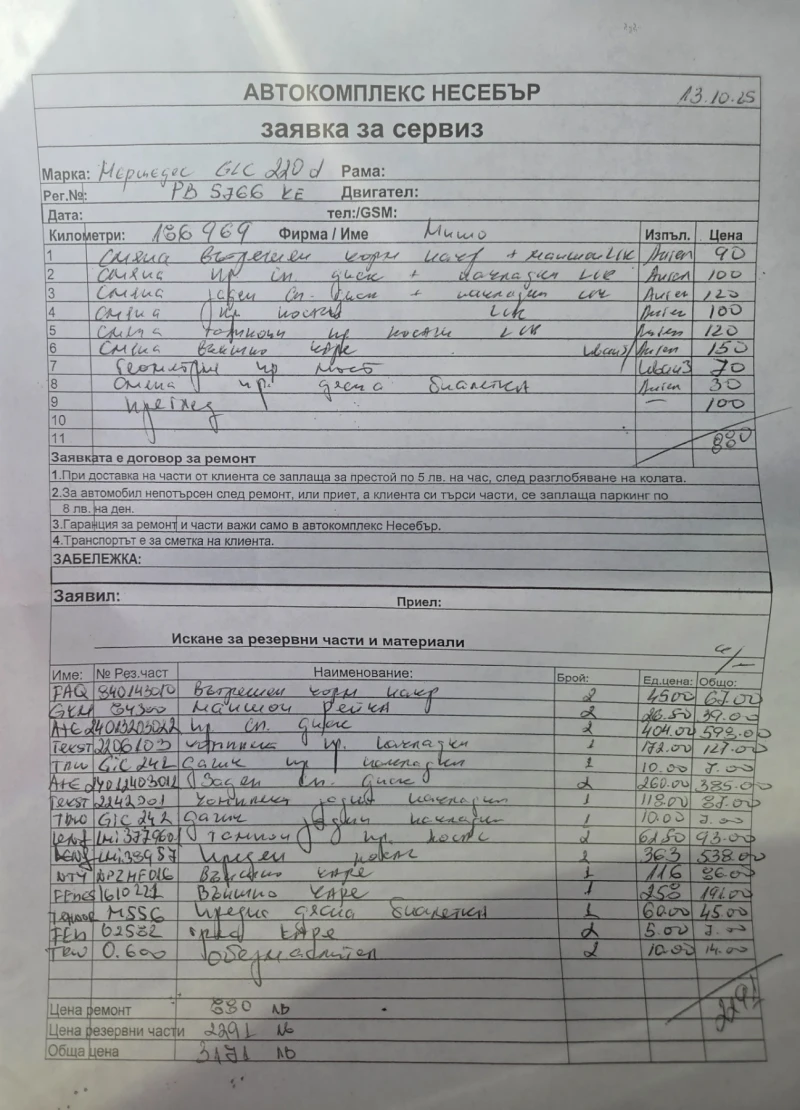 АВТОКОМПЛЕКС НЕСЕБЪР 13.10.25
заявка за сервиз
Марка: Мерцедес GLC 220 d Рама:
Рег.№: РВ 5766 КЕ Двигател:
Дата: тел:/GSM:
Километри: 186969 Фирма / Име Мишо Изпъл. Цена
1 Смяна вътрешен корм. накр + маншон L/K 90
2 Смяна пр сп. диск + накладки L/K 100
3 Смяна заден сп. диск + накладки L/K 120
4 Смяна пр носач L/K 100
5 Смяна тампони пр носачи L/K 120
6 Смяна външно каре 150
7 Геометрия пр мост 70
8 Смяна пр. дясна биалетка 30
9 Преглед — 100
10
11 880
Заявката е договор за ремонт
1.При доставка на части от клиента се заплаща за престой по 5 лв. на час, след разглобяване на колата.
2.За автомобил непотърсен след ремонт, или приет, а клиента си търси части, се заплаща паркинг по
8 лв. на ден.
3.Гаранция за ремонт и части важи само в автокомплекс Несебър.
4.Транспортът е за сметка на клиента.
ЗАБЕЛЕЖКА:
Заявил: Приел:
Искане за резервни части и материали
Име: № Рез.част Наименование: Брой: Ед.цена: Общо:
FAQ 840143010 Вътрешен корм накр 2 45.00 67.00
GKM 84300 Маншон Рейка 2 26.50 39.00
ATE 24013203022 Пр сп. диск 2 404.00 598.00
Текст 2206103 пр. накладки 1 172.00 127.00
TRW GIC 242 Датчик пр накладки 1 10.00 7.00
ATE 24012403012 Заден сп. диск 2 260.00 385.00
Текст 2242901 задни накладки 1 118.00 87.00
TRW GIC 242 Датчик задни накладки 1 10.00 7.00
LMI377960 Тампон пр. носач 2 62.50 93.00
LMI38957 Преден носач 2 363 538.00
NTY NPZME016 Външно каре 1 116 86.00
1610221 Външно каре 1 258 191.00
M556 Предна дясна биалетка 1 60.00 45.00
FEN 02582 каре 2 5.00 7.00
TRW 0.600 Обезмаслител 2 10.00 14.00
2291
Цена ремонт 880 лв
Цена резервни части 2291 лв
Обща цена 3171 лв